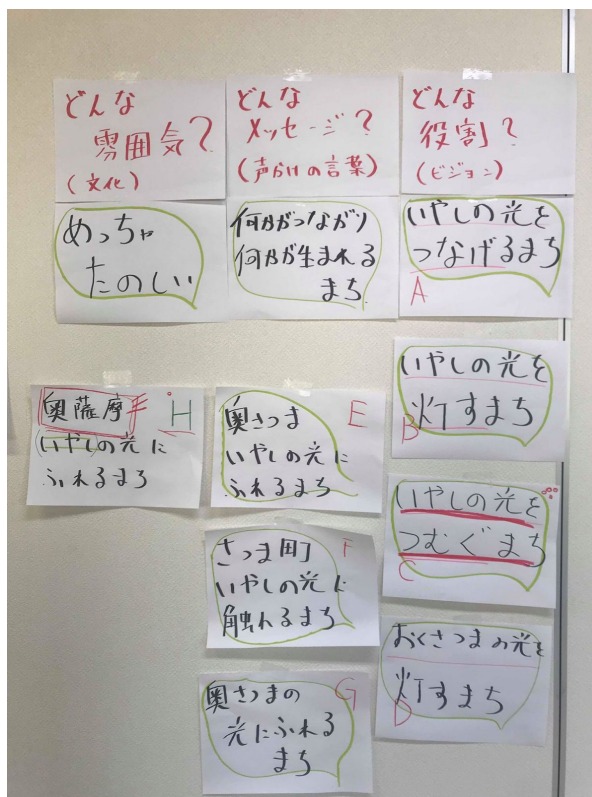 どんな
雰囲気?
(文化)
めっちゃ
たのしい
どんな
メッセージ?
(声かけの言葉)
何かがつながり
何かが生まれる
まち
どんな
役割?
(ビジョン)
いやしの光を
つなげるまち
A
いやしの光を
灯すまち
B
いやしの光を
つむぐまち
C
おくさつまの光を
灯すまち
D
奥さつま
E
いやしの光に
ふれるまち
さつま町
F
いやしの光に
触れるまち
奥さつまの
G
光にふれる
まち
奥薩摩
H
(いやしの光に
ふれるまち